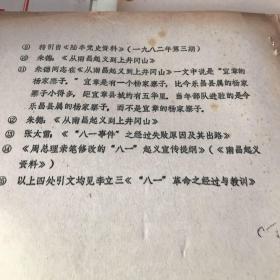 ⑨ 转引自《陆丰党史资料》（一九八二年第三期）
⑩ 朱德：《从南昌起义到上井冈山》
⑪ 朱德同志在《从南昌起义到上井冈山》一文中说是“宜章的
杨家寨子”。宜章是有一个杨家寨子，比今乐昌县的杨家
寨子小得多，距宜章县城约有五华里。当年部队进驻的是今
乐昌县属的杨家寨子，而不是宜章的杨家寨子。
⑫ 朱德：《从南昌起义到上井冈山》
⑬ 张太雷：《“八一事件”之经过失败原因及其出路》
⑭ 《周总理亲笔修改的“八一”起义宣传提纲》（《南昌起义
资料》）
⑮ 以上四处引文均见李立三《“八一”革命之经过与教训》